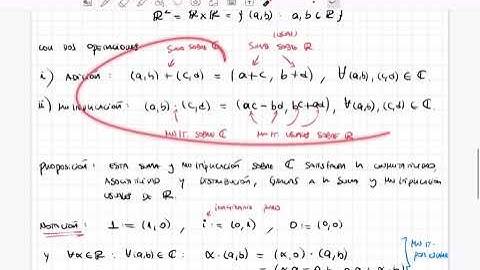 ℝ² = ℝ×ℝ = { (a,b) : a,b ∈ ℝ }
con dos operaciones
suma sobre ℂ
(usual) suma sobre ℝ
i) Adición: (a,b) + (c,d) = (a+c, b+d), ∀(a,b),(c,d) ∈ ℂ.
ii) Multiplicación: (a,b) · (c,d) = (ac-bd, bc+ad), ∀(a,b),(c,d) ∈ ℂ.
Mult. sobre ℂ
Mult. usuales sobre ℝ
Proposición: esta suma y multiplicación sobre ℂ satisfacen la conmutatividad,
asociatividad y distribución, gracias a la suma y multiplicación
usuales de ℝ.
imaginario puro
Notación: 1 := (1,0), i := (0,1), 0 := (0,0)
y ∀α∈ℝ: ∀(a,b)∈ℂ: α·(a,b) = (α,0)·(a,b)
Mult. por